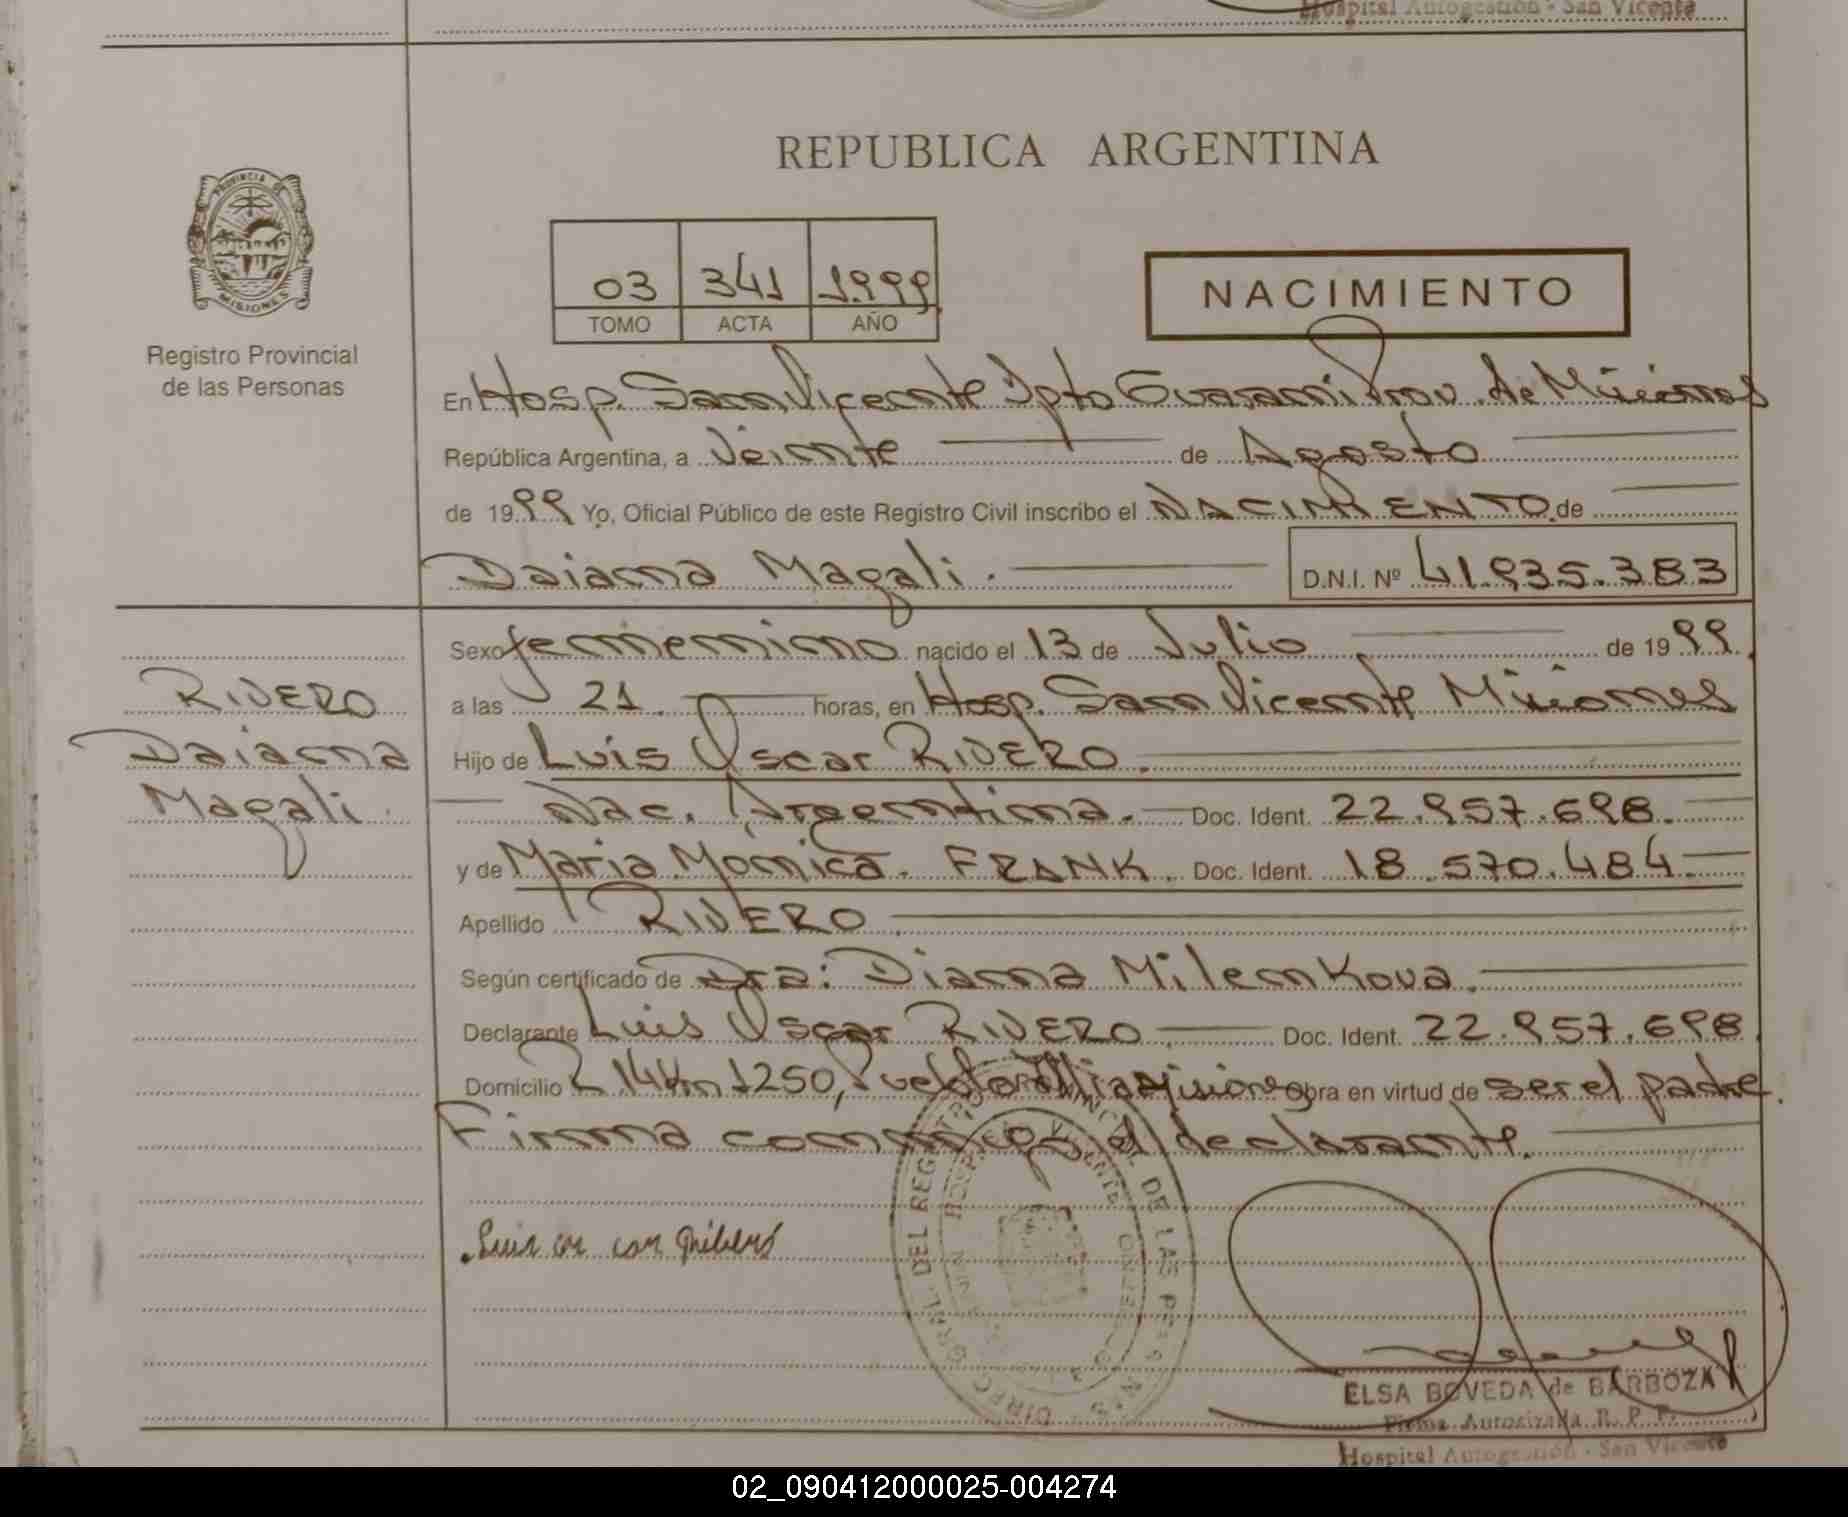 Hospital Autogestión - San Vicente
REPUBLICA ARGENTINA
PROVINCIA DE
MISIONES
Registro Provincial
de las Personas
03 341 1999
TOMO ACTA AÑO
NACIMIENTO
En Hosp. San Vicente Dpto Guaraní Prov. de Misiones
República Argentina, a Veinte de Agosto
de 1999 Yo, Oficial Público de este Registro Civil inscribo el NACIMIENTO de
Daiana Magali. D.N.I. Nº 41.935.383
RIVERO
Daiana
Magali.
Sexo femenino nacido el 13 de Julio de 1999.
a las 21. horas, en Hosp. San Vicente Misiones
Hijo de Luis Oscar RIVERO.
Nac. Argentina. Doc. Ident. 22.957.698.
y de Maria Mónica. FRANK. Doc. Ident. 18.570.484.
Apellido RIVERO.
Según certificado de Dra: Diana Milenkova.
Declarante Luis Oscar RIVERO Doc. Ident. 22.957.698.
Domicilio R 14 Km 1250, obra en virtud de ser el padre.
Firma conmigo el declarante.
DEL REGISTRO PROVINCIAL DE LAS
ELSA BOVEDA de BARBOZA
Firma Autorizada R. P. P.
Hospital Autogestión - San Vicente
02_090412000025-004274